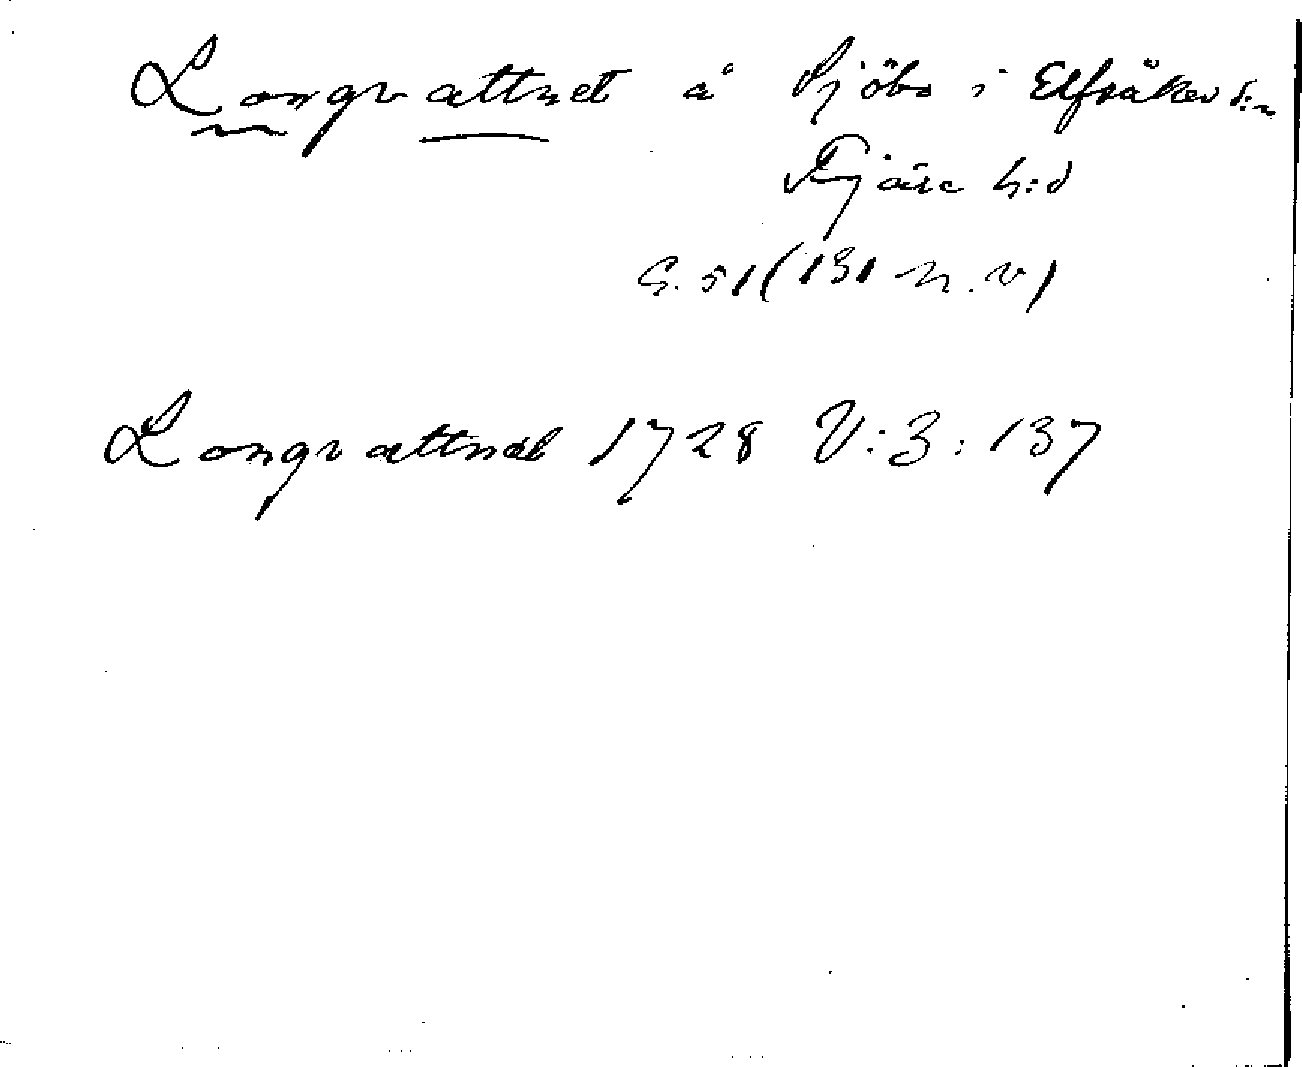 Longvattnet å Sjöbo i Elfsåker s:n
Fjäre h:d
G. 51 (131 n. v)
Longvattnet 1728 V:3:137